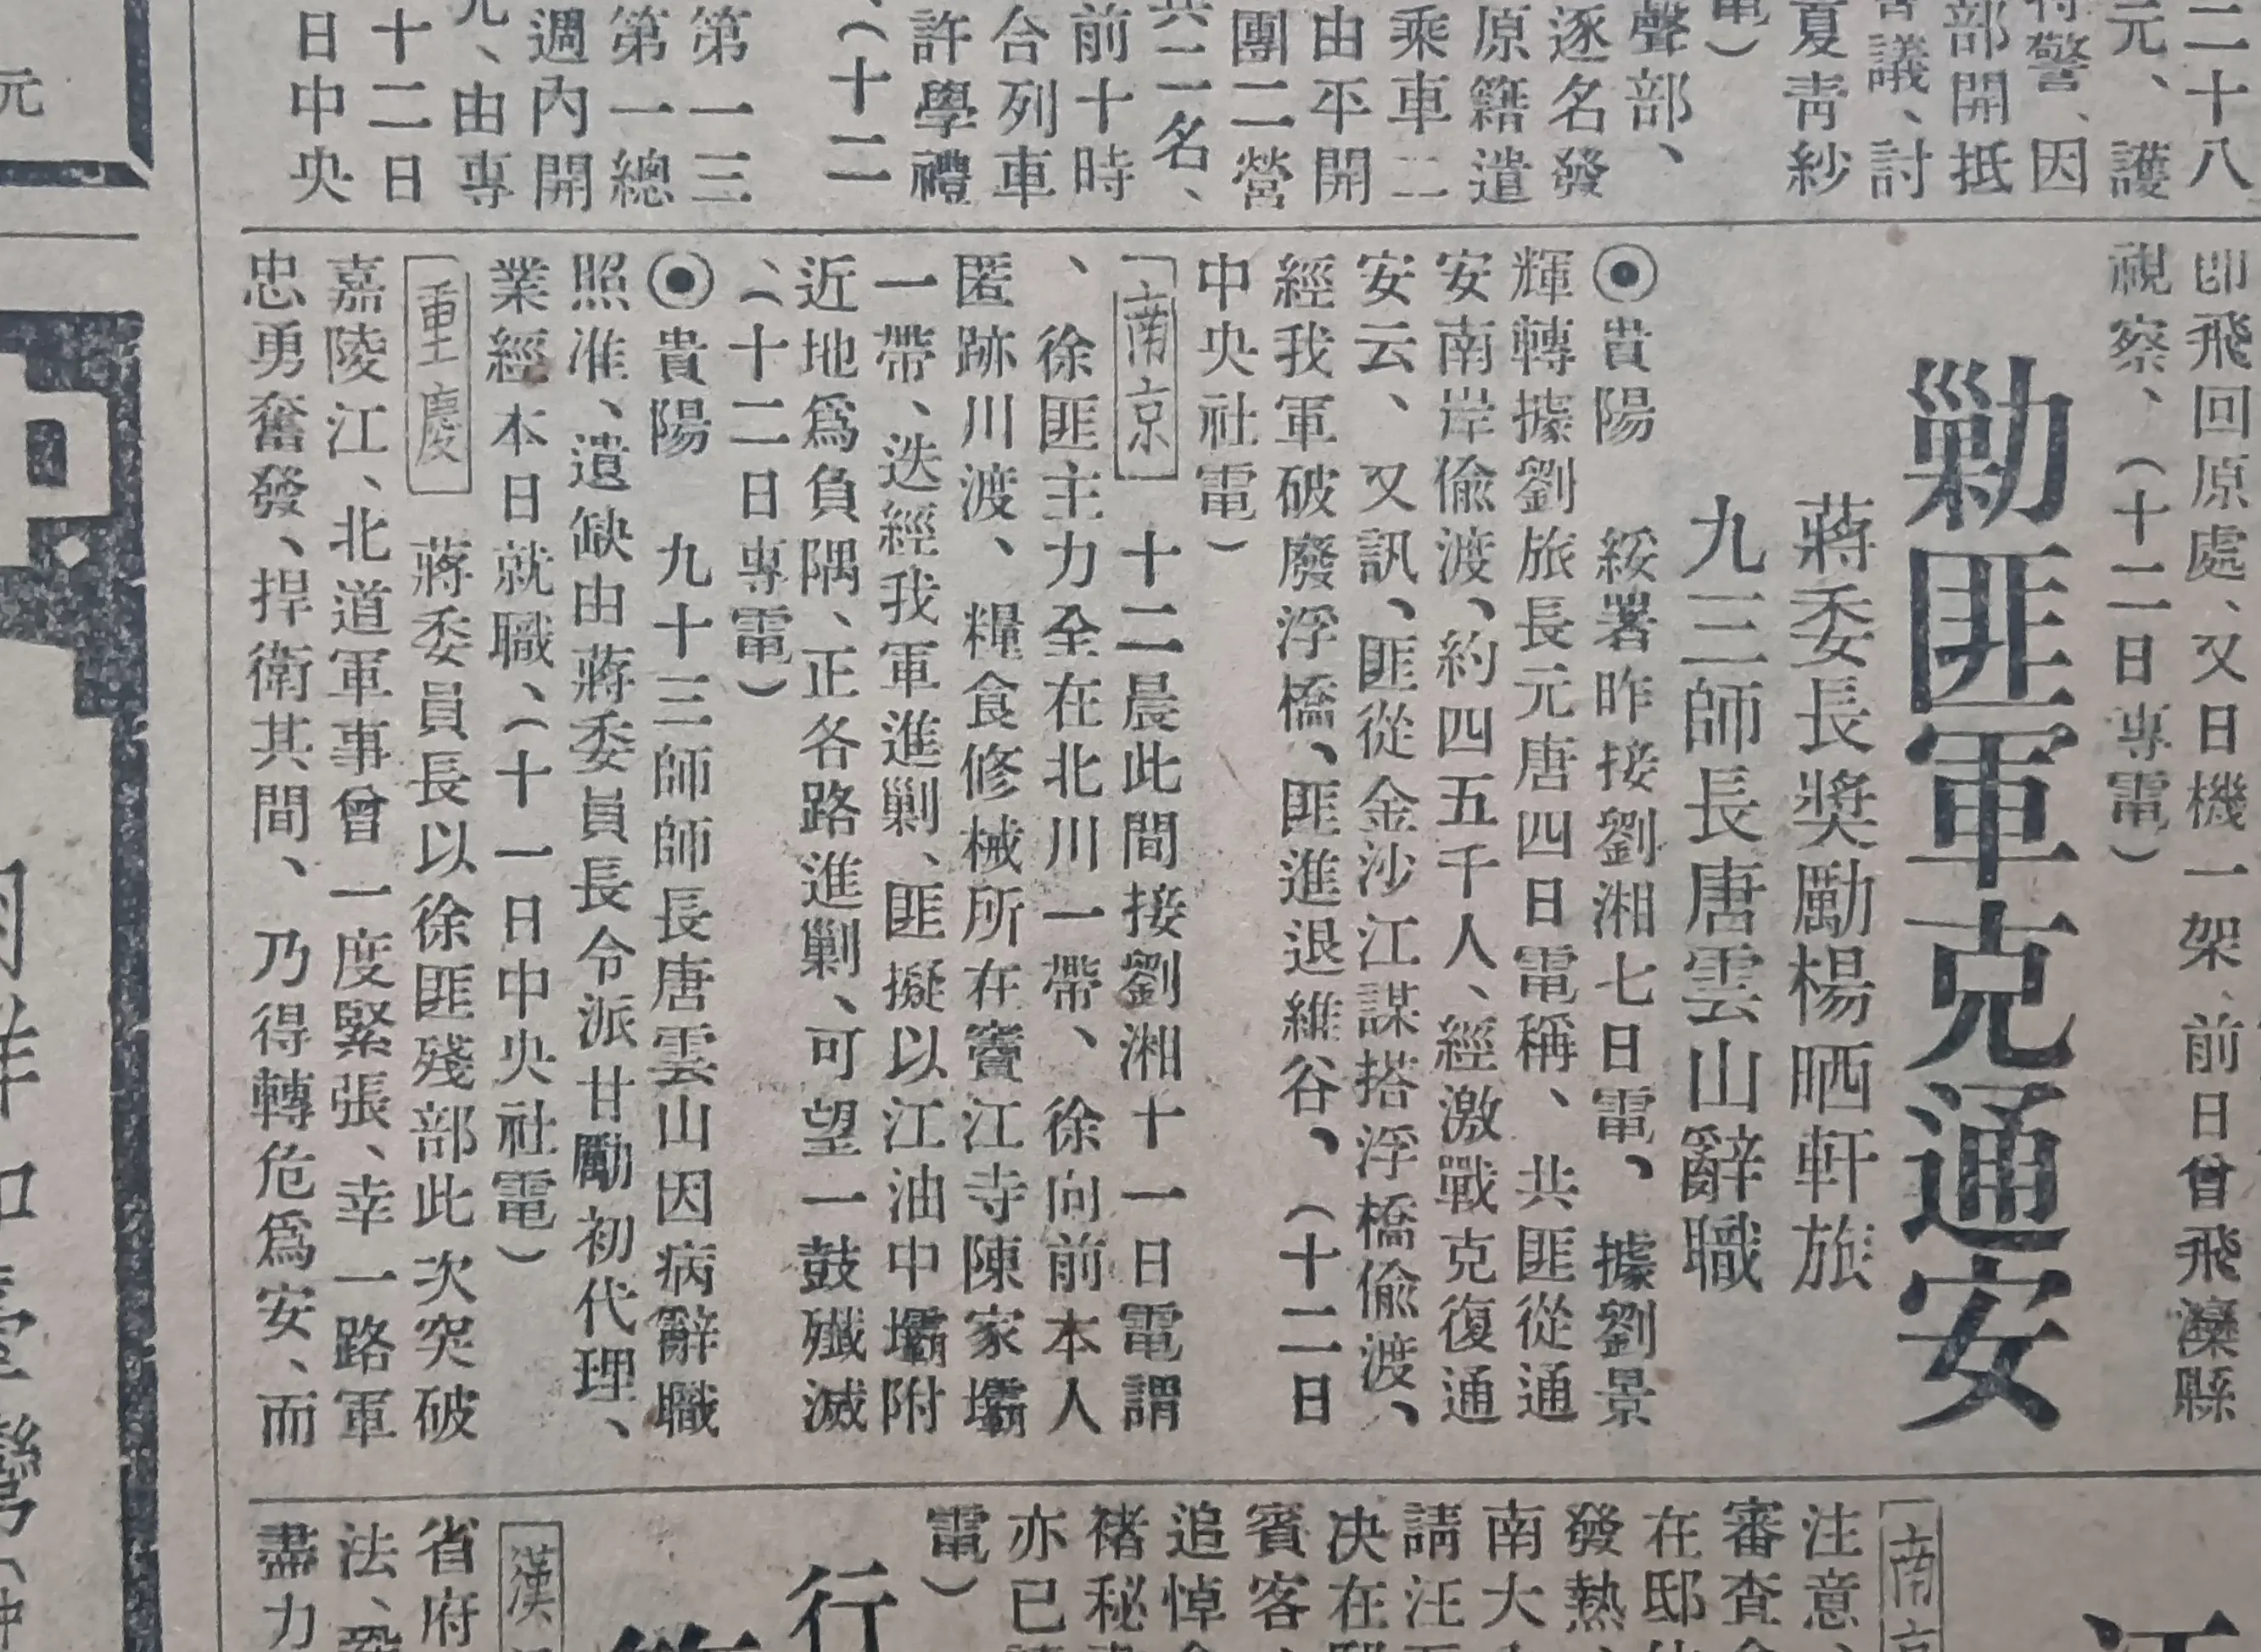 二十八
元、護
待警、因
部開抵
會議、討
夏靑紗
電）
聲部、
逐名發
原籍遣
乘車二
由平開
團二營
共二名、
前十時
合列車
許學禮
、（十二
第一三
第一總
週內開
元、由專
十二日
日中央
元
卽飛回原處、又日機一架、前日曾飛灤縣
視察、（十二日專電）
勦匪軍克通安
蔣委長獎勵楊晒軒旅
九三師長唐雲山辭職
◉貴陽　綏署昨接劉湘七日電、據劉景
輝轉據劉旅長元唐四日電稱、共匪從通
安南岸偸渡、約四五千人、經激戰克復通
安云、又訊、匪從金沙江謀搭浮橋偸渡、
經我軍破廢浮橋、匪進退維谷、（十二日
中央社電）
「南京」十二晨此間接劉湘十一日電謂
、徐匪主力全在北川一帶、徐向前本人
匿跡川渡、糧食修械所在竇江寺陳家壩
一帶、迭經我軍進剿、匪擬以江油中壩附
近地爲負隅、正各路進剿、可望一鼓殲滅
、（十二日專電）
◉貴陽　九十三師師長唐雲山因病辭職
照准、遺缺由蔣委員長令派甘勵初代理、
業經本日就職、（十一日中央社電）
重慶　蔣委員長以徐匪殘部此次突破
嘉陵江、北道軍事曾一度緊張、幸一路軍
忠勇奮發、捍衛其間、乃得轉危爲安、而
南京
注意、
審查會
在邸休
發熱、
南大
請汪
決在
賓客、
追悼會
褚秘書
亦已
電）
行
漢
省府
法、
盡力